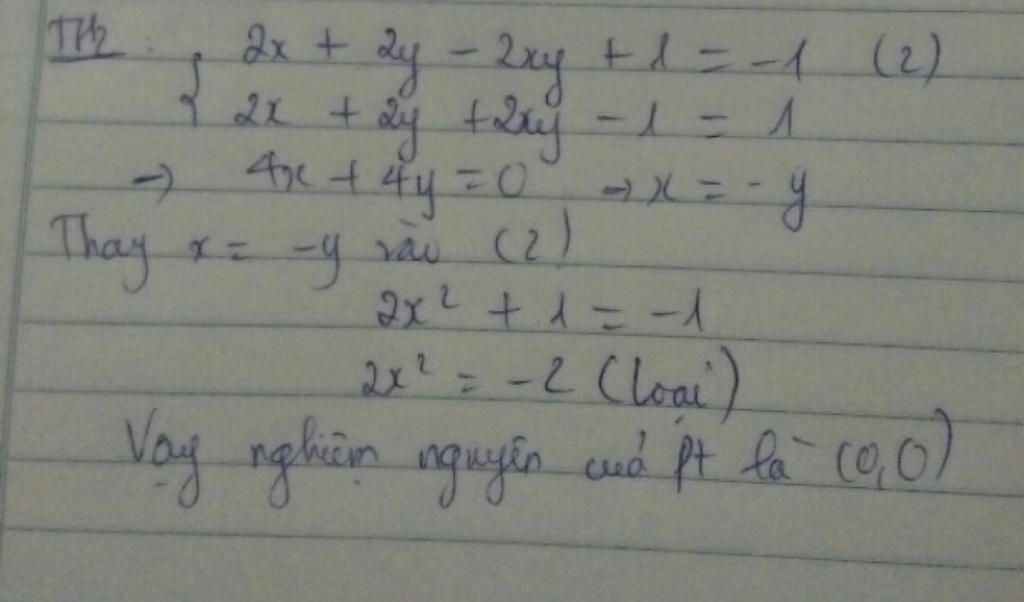 TH2: { 2x + 2y - 2xy + 1 = -1 (2)
2x + 2y + 2xy - 1 = 1
→ 4x + 4y = 0 → x = -y
Thay x = -y vào (2)
2x² + 1 = -1
2x² = -2 (loại)
Vậy nghiệm nguyên cuả pt là (0,0)